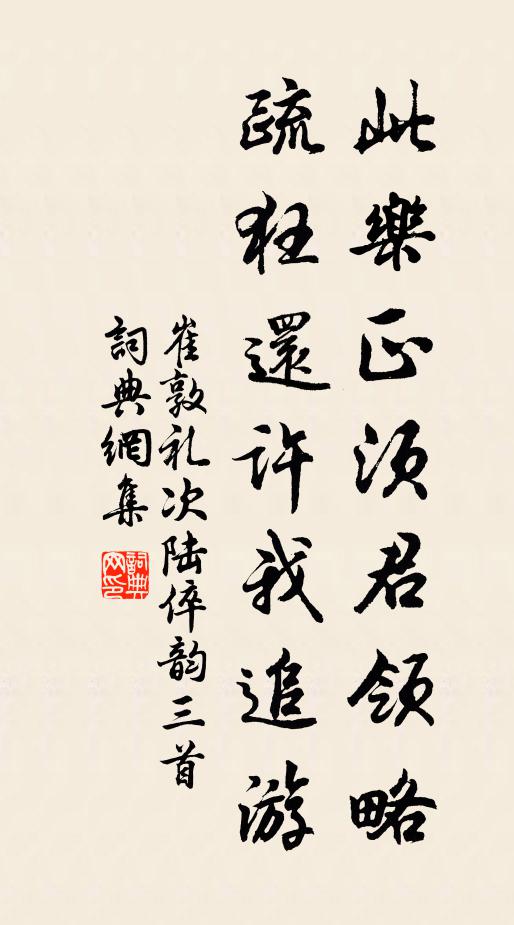 此樂正須君領略
疏狂還許我追游
崔敦礼次陆倅韵三首
詞典網集
詞典
网印